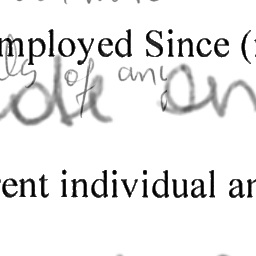 mployed Since (
ts of any
ode on
rent individual an